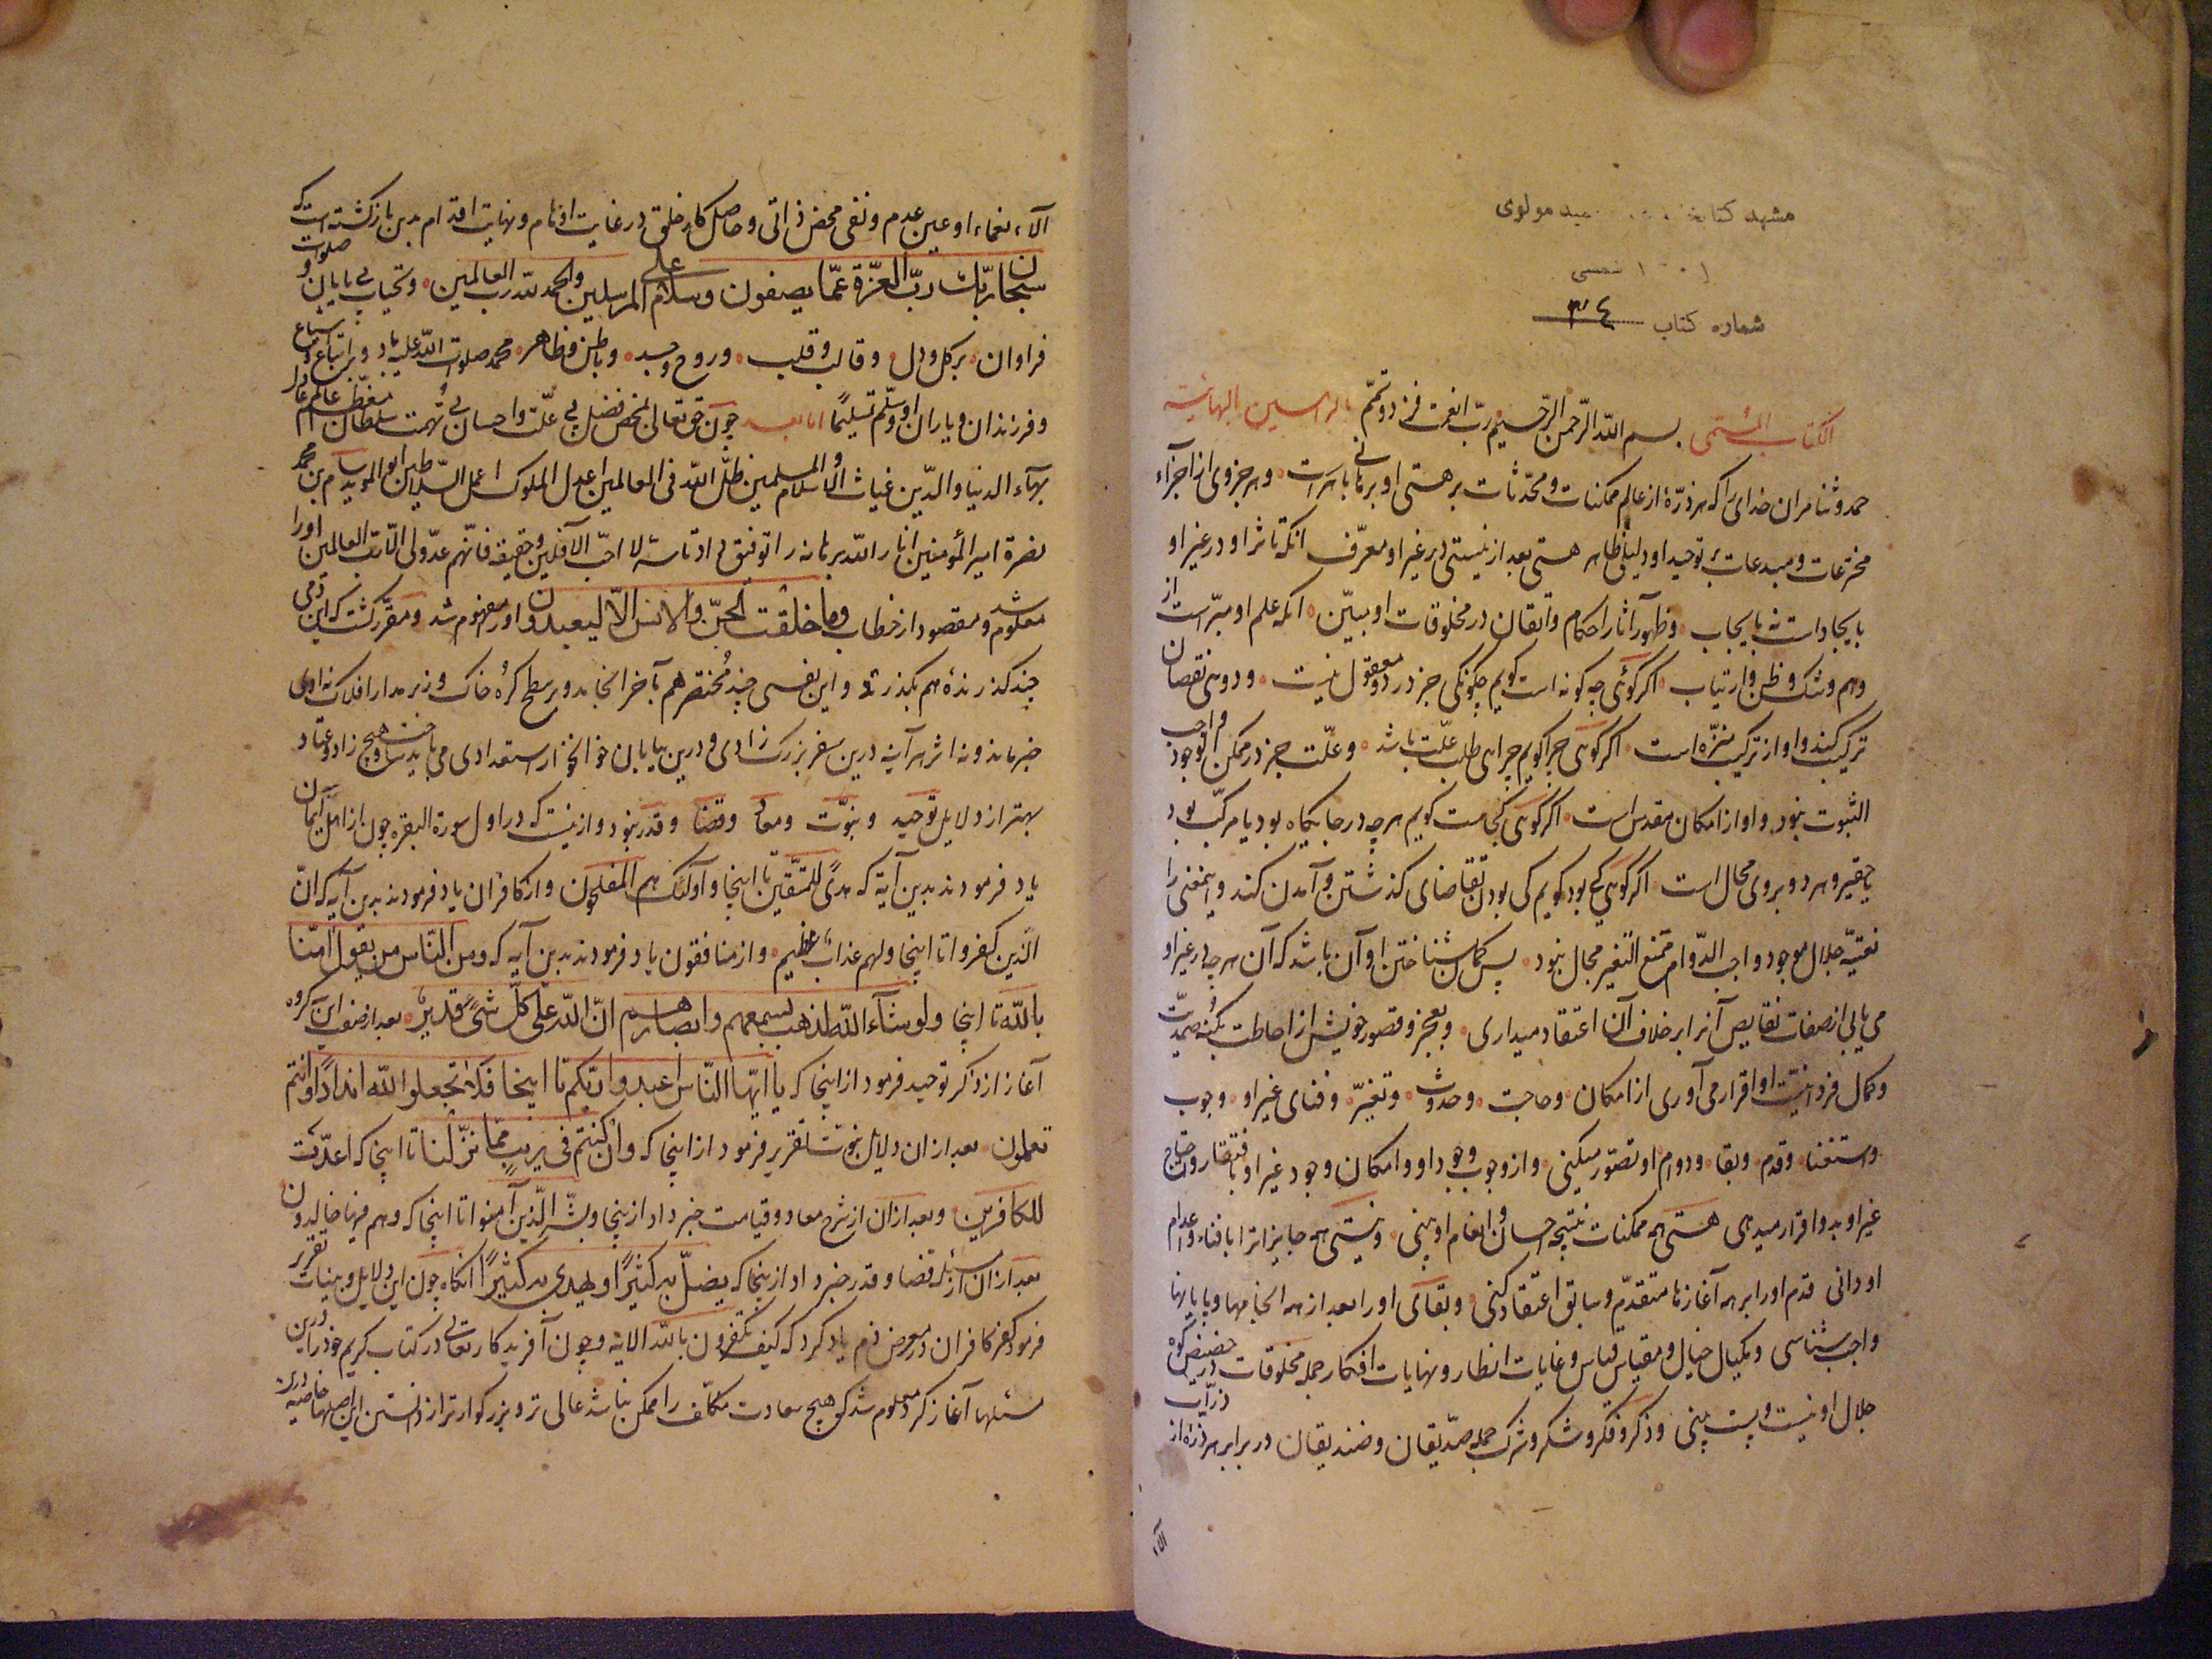 مشهد کتابخانه ... سید مولوی
شماره کتاب ٣٤
الکتاب المسمی بسم الله الرحمن الرحیم رب انعمت فزد و تمم بالبراهین البهائیه
حمد و ثنا مران خدای را که هر ذرهٔ از عالم ممکنات و محدثات بر هستی او برهانی باهراست ۰ و هر جزوی از اجزاء
مخترعات و مبدعات بر توحید او دلیلی ظاهر هستی بعد از نیستی در غیر او معرف انکه تاثر او در غیر او
بایجاد است نه بایجاب ۰ و ظهور آثار احکام و اتقان در مخلوقات او مبیّن ۰ انکه علم او مبرّاست از
وهم و شک و ظن و ارتیاب ۰ اکر کوئی چه کونه است کویم چکونکی جز در دو معقول نیست ۰ و دوی نقصان
ترکیب کند و او از ترکیب منزه است ۰ اکر کوئی چرا کویم چرای طلب علّت باشد ۰ و علّت جز در ممکن الوجود و واجب
الثبوت نبود و او از امکان مقدس است ۰ اکر کوئی کجاست کویم هر چه در جایکاه بود یا مرکب بود
یا حقیر و هر دو بروی محال است ۰ اکر کوئی کی بود کویم کی بودن تقاضای کذشتن و آمدن کند و اینمعنی را
جلال موجود واجب الدوام ممتنع التغیر مجال نبود ۰ پس کمال شناختن او آن باشد که آن هر چه در غیر او
می یابی از صفات نقایص آنرا بر خلاف آن اعتقاد میداری ۰ و بعجز و قصور خویش از احاطت بکنه صمدیت
و کمال فردانیت او اقرار می آوری از امکان ۰ و حاجت ۰ و حدوث ۰ و تغیّر ۰ و فنای غیر او ۰ وجوب
و استغنا ۰ و قدم ۰ و بقا ۰ و دوام او تصور میکینی ۰ و از وجوب وجود او و امکان وجود غیر او بافتقار و احتیاج
غیر او بدو اقرار میدهی هستی همه ممکنات نتیجه احسان و انعام او بینی ۰ و نیستی همه جایزات را افناء و اعدام
او دانی قدم او را بر همه آغازها متقدم و سابق اعتقاد کنی ۰ و بقای او را بعد از همه انجامها و پایانها
واجب شناسی و بمکیال خیال و مقیاس قیاس و غایات انظار و نهایات افکار جمله مخلوقات در حضیض کوه
جلال او نیست و پست بینی و ذکر و فکر و شکر و شرک جمله صدیقان و ضندیقان در برابر هر ذره از ذرات
آلاء
آلاء نعماء او عین عدم و نفی محض ذاتی و حاصل کار خلق در غایت افهام و نهایت اقدام بدین بازکشته است که
سبحان ربک رب العزة عما یصفون وسلام علی المرسلین والحمد لله رب العالمین ۰ و تحیات بی پایان و صلوات
فراوان ۰ بر کل و دل ۰ و قالب و قلب ۰ و روح و جسد ۰ و باطن و ظاهر ۰ محمد صلوات الله علیه باد و بر اتباع و اشیاع
و فرزندان و یاران او وسلم تسلیمًا اما بعد چون حق تعالی بمحض فضل بی علّت و احسان بی تهمت سلطان معظم عالم عادل
بهاء الدنیا والدین غیاث الاسلام والمسلمین ظل الله فی العالمین اعدل الملوک اعمل السلاطین ابو المؤید سام بن محمد
نصرة امیر المؤمنین انار الله برهانه را توفیق داد تا سرّ لا احب الآفلین و حقیقه فانهم عدو لی الا رب العالمین او را
معلوم شد و مقصود از خطاب وما خلقت الجن والانس الا لیعبدون او را مفهوم شد و مقرر کشت که این دمی
چند کذرنده هم بکذرد و این نفسی چند مختصر هم بآخر انجامد و بر سطح کرهٔ خاک و زیر مدار افلاک نه ازوی
خبر ماند و نه اثر هر آینه درین سفر بزرک زادی و درین بیابان خونخوار استعدادی می باید ساخت و هیچ زاد و عتاد
بهتر از دلایل توحید و نبوّت و معاد و قضا و قدر نبود و ازینست که در اول سورة البقره چون از اهل ایمان
یاد فرمودند بدین آیة که هدی للمتقین تا اینجا و اولئک هم المفلحون و از کافران یاد فرمودند بدین آیه که ان
الذین کفروا تا اینجا ولهم عذاب عظیم ۰ و از منافقون یاد فرمودند بدین آیه که ومن الناس من یقول آمنا
بالله تا اینجا ولو شآء الله لذهب بسمعهم وابصارهم ان الله علی کل شیء قدیر ۰ بعد از صفت این کروه
آغاز از ذکر توحید فرمود از اینجا که یا ایها الناس اعبدوا ربکم تا اینجا فلا تجعلوا لله اندادا وانتم
تعلمون ۰ بعد از ان دلایل نبوت تقریر فرمود از اینجا که وان کنتم فی ریب مما نزلنا تا اینجا که اعدت
للکافرین ۰ و بعد از ان از شرح معاد و قیامت خبر داد ازینجا وبشر الذین آمنوا تا اینجا که وهم فیها خالدون
بعد از ان از مسئله قضا و قدر خبر داد ازینجا که یضل به کثیرًا ویهدی به کثیرًا انکاه چون این دلایل و بینات تقریر
فرمود کفر کافران در معرض ذم یاد کرد که کیف تکفرون بالله الایه و چون آفریدکار تعالی در کتاب کریم خود را درین
مسئلها آغاز کرد معلوم شد که هیچ سعادت مکلف را ممکن نباشد عالی تر و بزرکوارتر از دانستن این اصلها خاصه درین